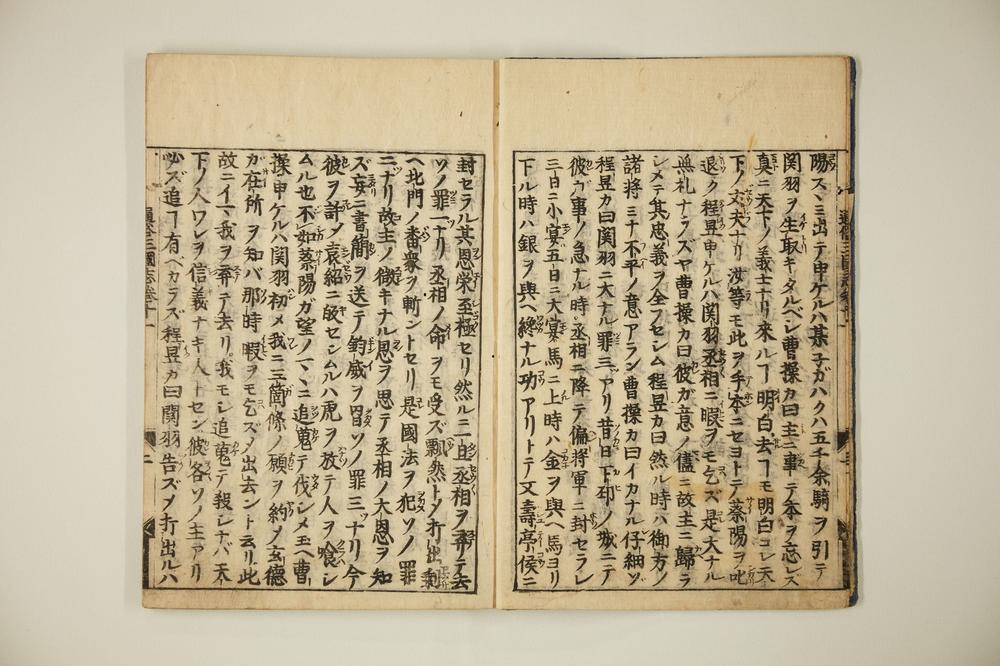 陽スヽミ出テ申ケルハ某子ガハクハ五千余騎ヲ引テ
関羽ヲ生取キタルベシ曹操カ曰主ニ事テ本ヲ忘レズ
真ニ天下ノ義士ナリ來ルヿ明白去ヿモ明白コレ天
下ノ丈夫ナリ汝等モ此ヲ手本ニセヨトテ蔡陽ヲ叱
退ク程昱申ケルハ関羽丞相ニ暇ヲモ乞ズ是大ナル
無礼ナラズヤ曹操カ曰彼ガ意ノ儘ニ故主ニ歸ラ
シメテ其忠義ヲ全フセシム程昱カ曰然ル時ハ御方ノ
諸將ミナ不平ノ意アラン曹操カ曰イカナル仔細ゾ
程昱カ曰関羽ニ大ナル罪三アリ昔日下邳ノ城ニテ
彼カ事ノ急ナル時丞相ニ降テ偏将軍ニ封セラレ
三日ニ小宴五日ニ大宴馬ニ上時ハ金ヲ與ヘ馬ヨリ
下ル時ハ銀ヲ與ヘ纔ナル功アリトテ又壽亭侯ニ
封セラル其恩榮至極セリ然ルニ一旦丞相ヲ弃テ去
ソノ罪一ナリ丞相ノ命ヲモ受ズ飄然トメ打出剰
ヘ北門ノ番衆ヲ斬ントセリ是國法ヲ犯ソノ罪
二ナリ故主ノ微キナル恩ヲ思テ丞相ノ大恩ヲ知
ズ妄ニ書簡ヲ送テ鈞威ヲ冒ソノ罪三ナリ今
彼ヲ許ノ袁紹ニ皈セシムルハ虎ヲ放テ人ヲ喰シ
ムル也不如蔡陽ガ望ノマヽニ追蒐テ伐シメ玉ヘ曹
操申ケルハ関羽初メ我ニ三箇條ノ願ヲ約メ玄徳
ガ在所ヲ知バ那時暇ヲモ乞ズメ出去ント云リ此
故ニイマ我ヲ弃テ去リ我モシ追蒐テ殺シナバ天
下ノ人ワレヲ信義ナキ人トセン彼各ソノ主アリ
必ズ追ヿ有ヘカラズ程昱カ曰関羽告ズメ打出ルハ